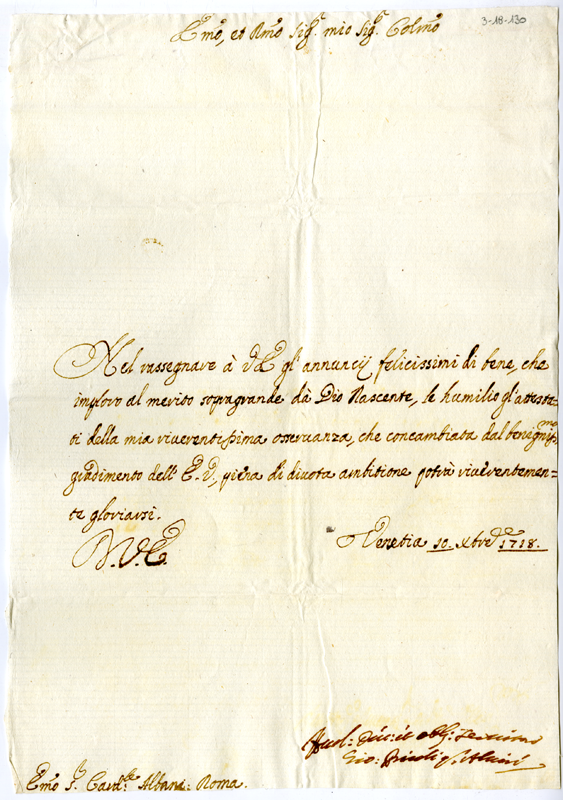 3-18-130
Emo, et Rmo Sigr. mio Sigr. Colmo
Nel rassegnare à V.E. gl' annuncij felicissimi di bene, che
imploro al merito sopragrande dà Dio Nascente, le humilio gl'attesta-
ti della mia riverentissima osservanza, che concambiata dal benignismo
gradimento dell' E.V., piena di divota ambitione potrà riverentemen=
te gloriarsi.
D. V. E.
Venetia 10. Xbre 1718.
Gio:
Emo Sr. Cardle Albani: Roma.